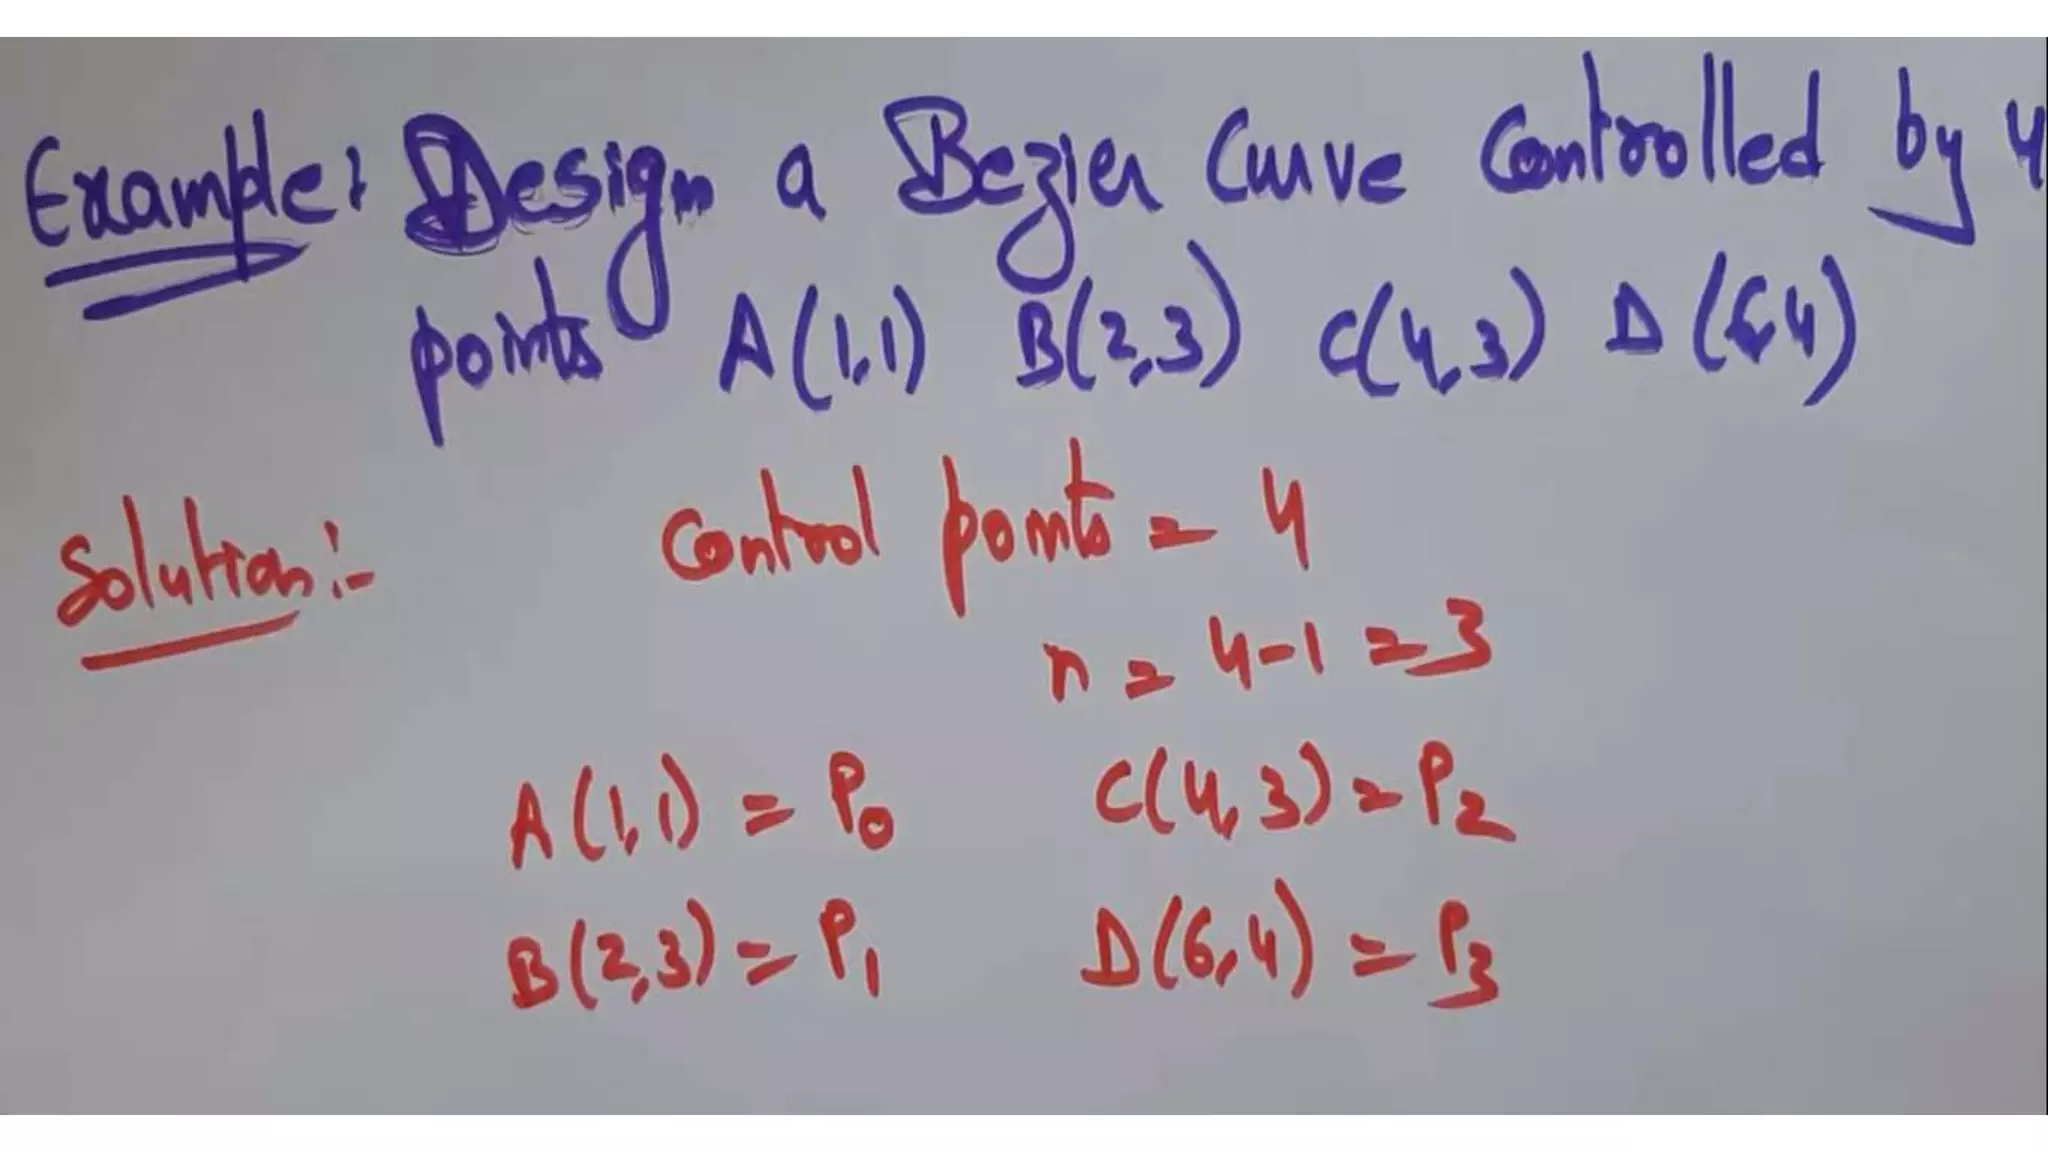 Example: Design a Bezier Curve Controlled by 4
points A(1,1) B(2,3) C(4,3) D(6,4)
Solution:- Control points = 4
n = 4-1 = 3
A(1,1) = P0 C(4,3) = P2
B(2,3) = P1 D(6,4) = P3